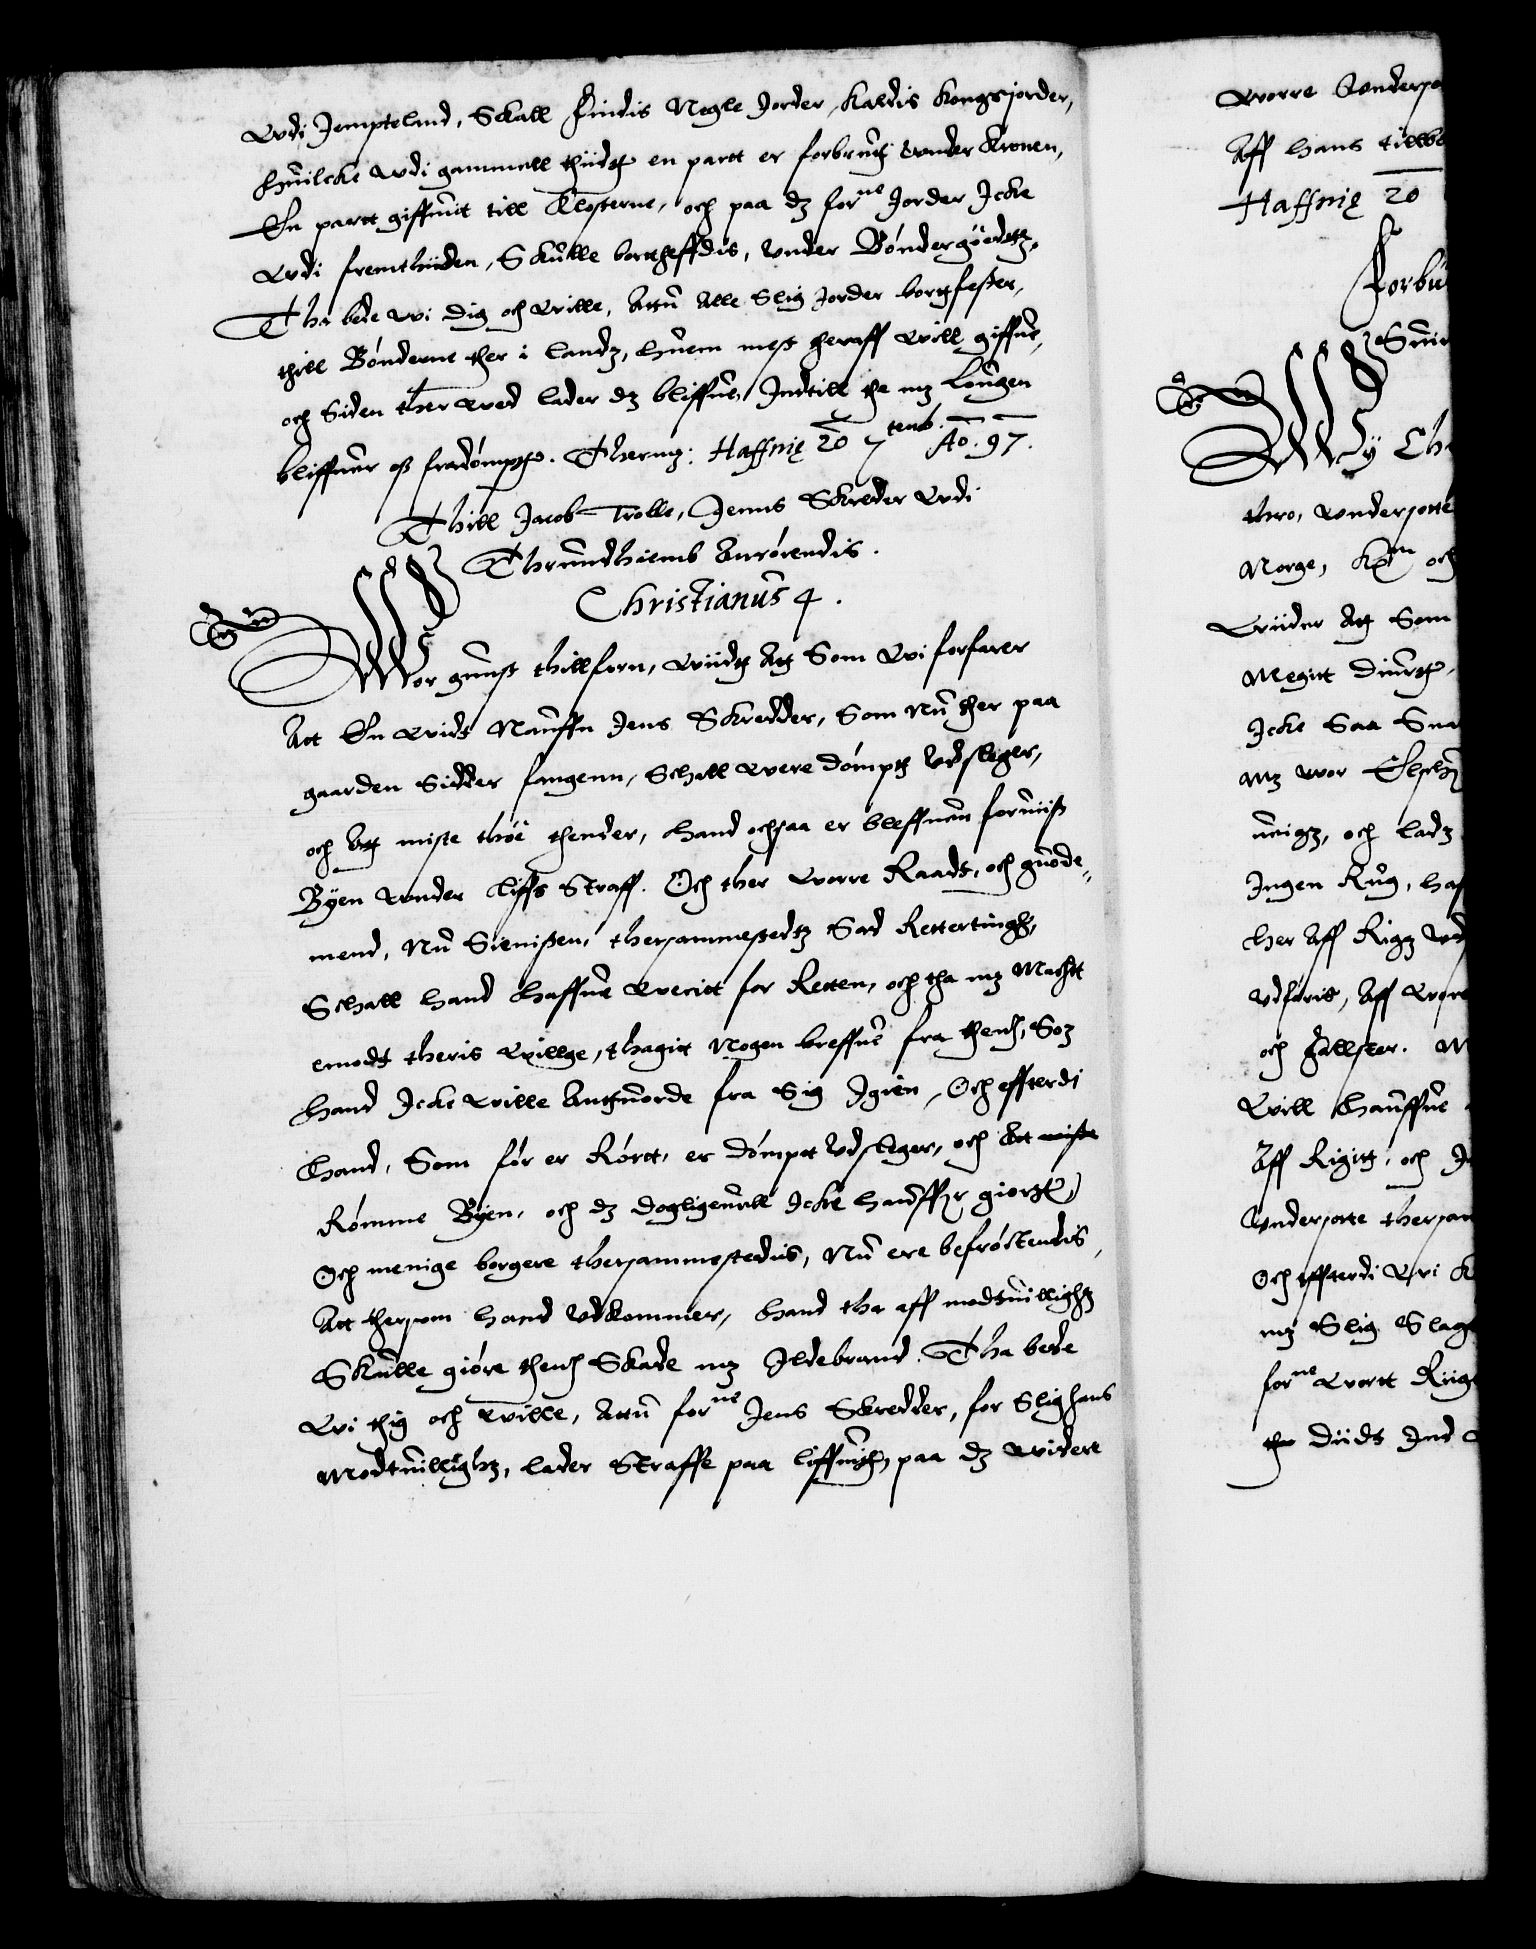 Wdi Jempteland, Skall findis Nogle Jorder, kaldis kongsjorder,
huilcke wdi gammell thiidtt en partt er forbrutt wnder Kronen,
En partt giffuit till Klosterne, och paa dz forne Jorder Icke
wdi fremthiiden, Skulle bortheffdis, Vnder Bóndergóedtz,
Tha bede wi dig och wille, Attu Alle Slig Jorder bortfester,
thill Bónderne ther i landz, huem mest theraff will giffue,
och Siden ther wed lader dz bliffue, Indtill the mz Lougen
bliffuer oß fradómptt. Thermz: Haffnię 20 7tenb. Ao. 97.
Thill Jacob Trolle, Jenns Skreder wdi
Thrundhiemb Anrórendis.
Christianus 4.
Wor gunst thillforn, wiidtt Att Som wi forfarer
Att En widt Naffn Jens Skredder, Som Nu ther paa
gaarden Sidder fangenn, Schall were dómptt Udsleger,
och Att miste thoe thender, hand ochsaa er bleffuen foruiist
Byen wnder Liffs Straff. Och ther worre Raadt, och guode
mend, Nu Sienisten, thersammestedtz Sad Rettertingh,
Schall hand haffue weritt for Retten, och tha mz Machtt
emodt theris willge, thagitt Nogen breffue fra thend, Som
hand Icke wille Antuorde fra Sig Igien, Och effterdi
hand, Som fór er Rórtt, er dómptt Udsleger, och Att miste
Rómme Byen, och dz dogligeuell Icke haffr giortt
Och menige borgere thersammestedtis, Nu ere befróctendis,
Att thersom hand Udkommer, hand tha aff modtuillighz
Skulle gióre thend Skade mz Ildebrand. Tha bede
Wi thig och wille, Attu forne Jens Skredder, for Slig hans
Modtuillighz, lader Straffe paa liffuitt, paa dz widere
worre Vndersa
Aff hans tillbe
Haffnię 20
Forbu
Suer
Wy Chr
thro, wndersotte
Norge,
Wiider Att Som
Megitt Diurtt,
Icke Saa Sna
mz wor
och ladz
Ingen Rug, haf
her Aff Rigz wd
Udfóris, Aff wore
och fallster.
Will haffue
Aff Rigitt, och
Vndersotte thersam
Och effterdi wi
mz Slig Slag
forne wortt Riig
Diidt Ind